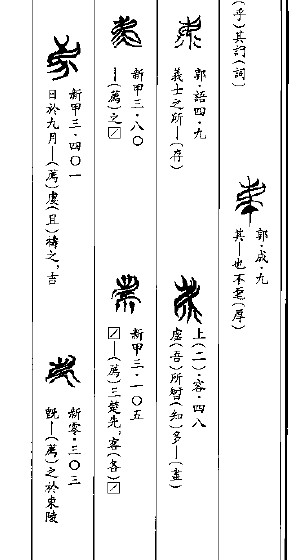 (乎)其訶(詞)
郭·成·九
其—也不厚(厚)
郭·語四·九
義士之所—(存)
上(二)·容·四八
虗(吾)所智(知)多—(盡)
新甲三·八〇
—(薦)之☑
新甲三·一〇五
☑—(薦)三楚先,客(各)☑
新甲三·四〇一
日於九月—(薦)虘(且)禱之,吉
新零·三〇三
既—(薦)之於東陵